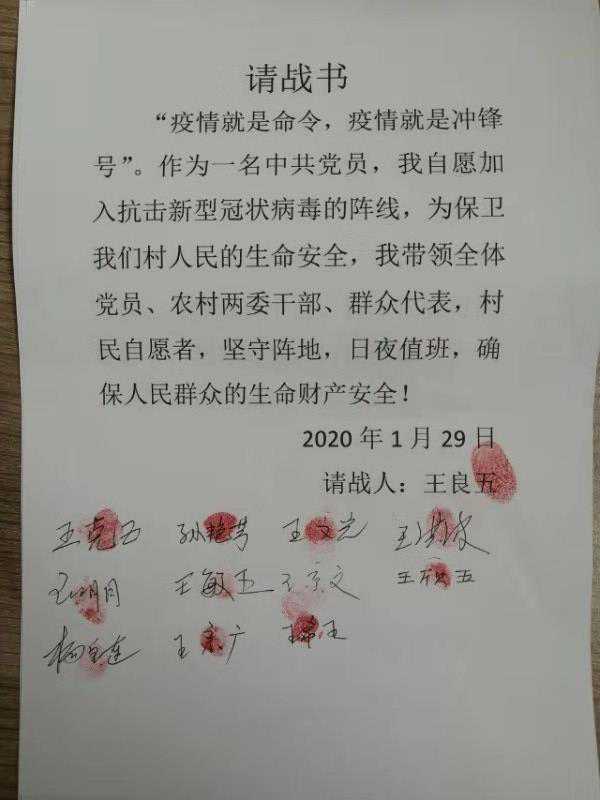 请战书
“疫情就是命令，疫情就是冲锋
号”。作为一名中共党员，我自愿加
入抗击新型冠状病毒的阵线，为保卫
我们村人民的生命安全，我带领全体
党员、农村两委干部、群众代表，村
民自愿者，坚守阵地，日夜值班，确
保人民群众的生命财产安全！
2020 年 1 月 29 日
请战人：王良五
王克五 孙艳芳 王文光
王敏五 王京文
王 广